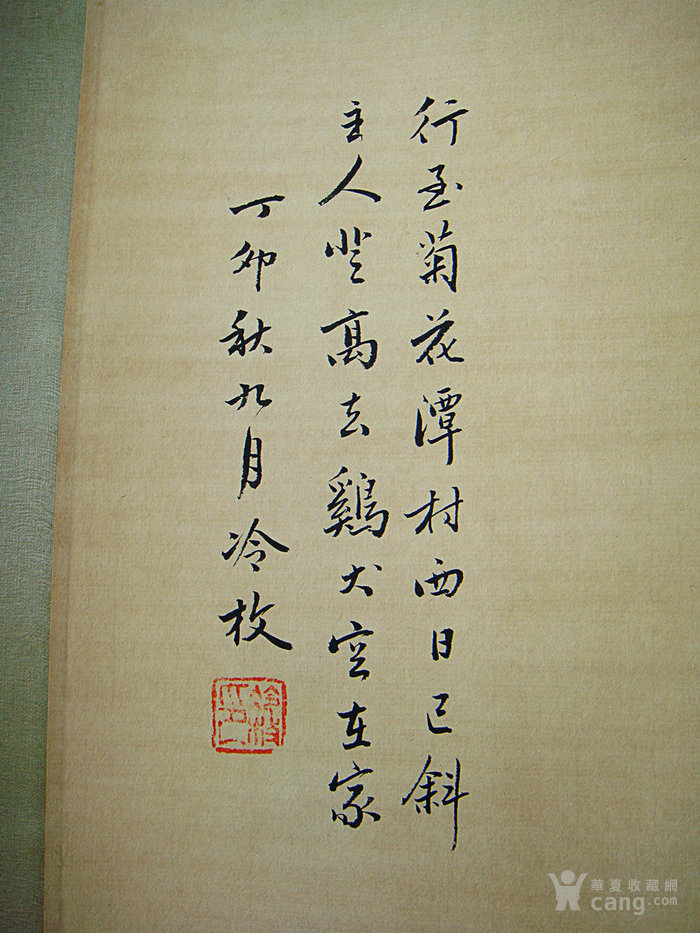 行至菊花潭村西日已斜
主人登高去鷄犬空在家
丁卯秋九月冷枚
華夏收藏網
cang.com